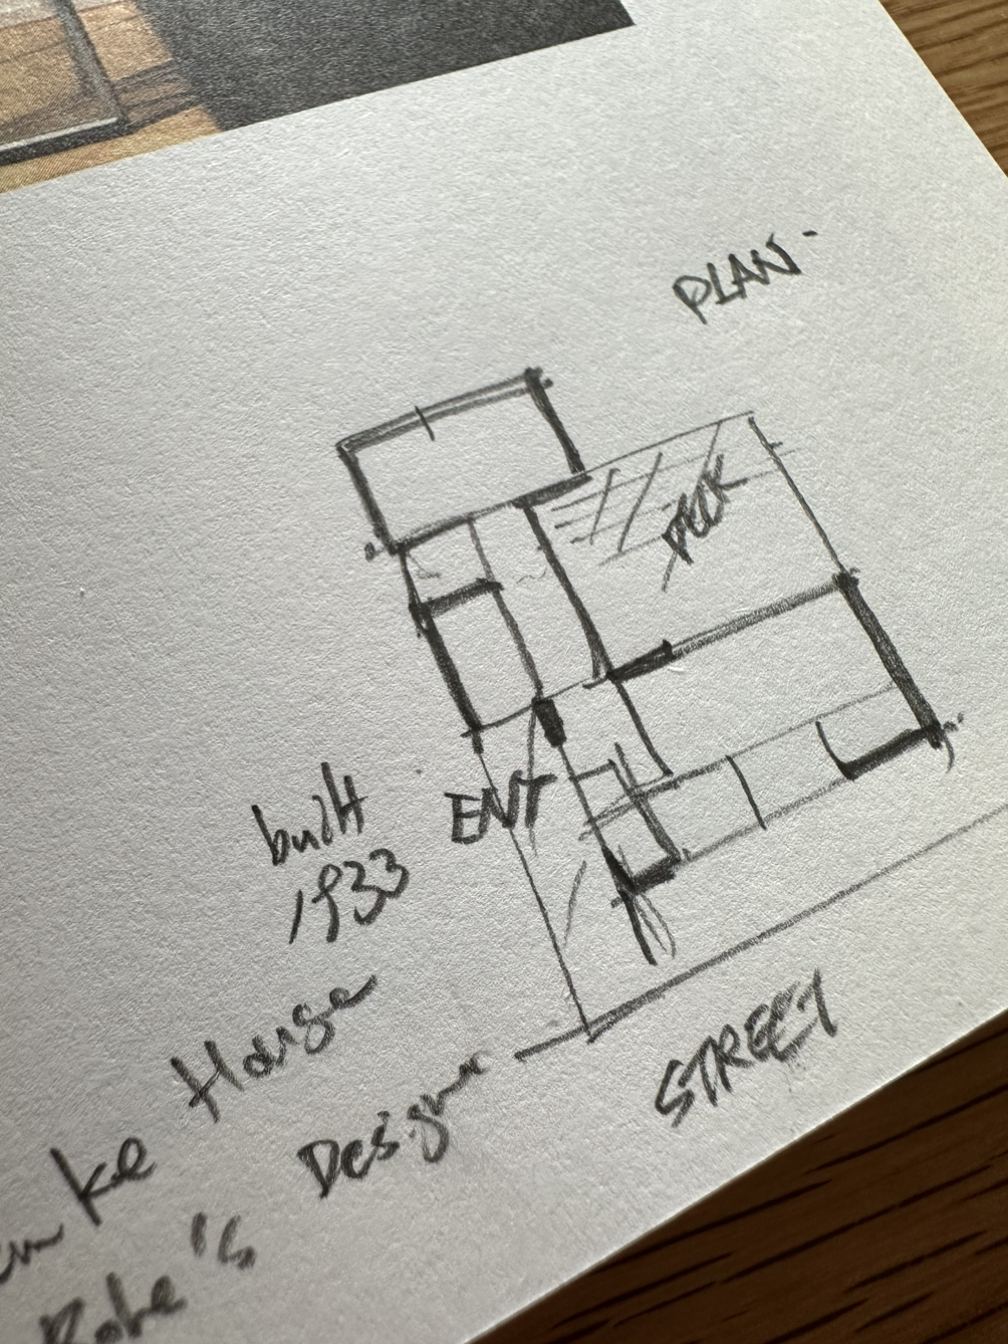 PLAN
DECK
ENT
built
1933
House
STREET
ke
Design
Rohe's